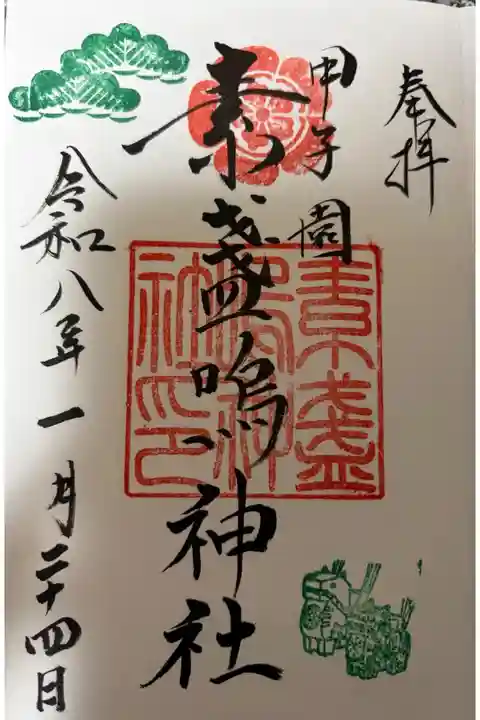 奉拝
甲子園
素盞嗚神社
素盞
嗚神
社印
令和八年一月二十四日